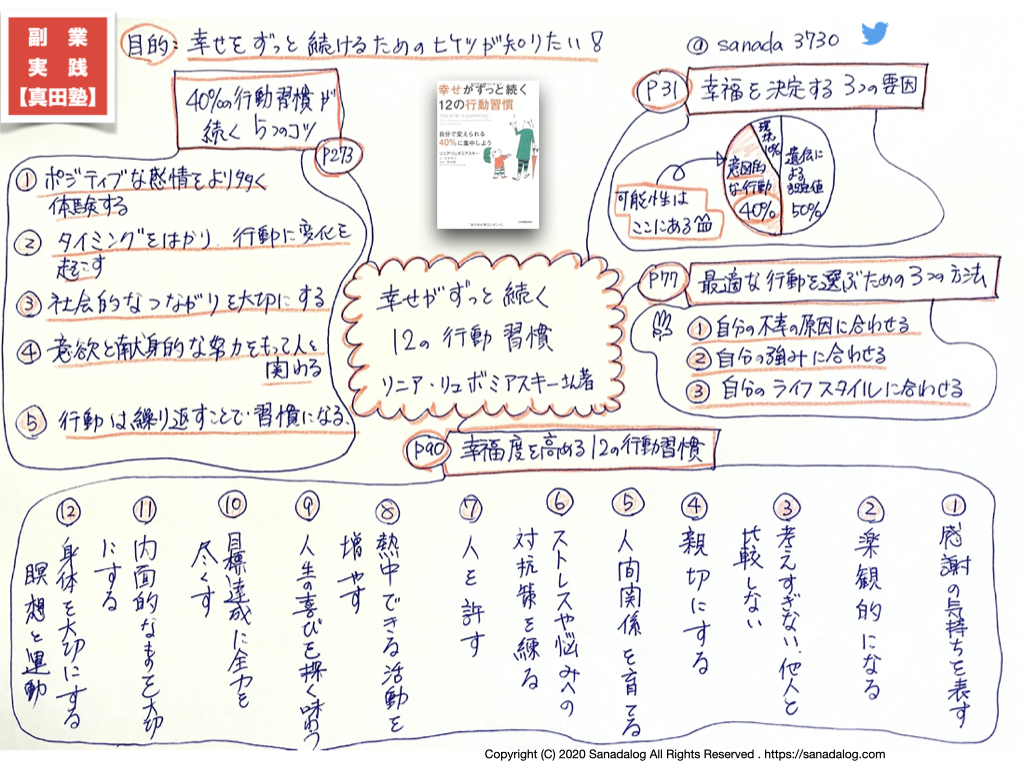 副業
実践
【真田塾】
目的：幸せをずっと続けるためのヒケツが知りたい！
@ sanada 3730
40%の行動習慣が
続く 5つのコツ
P273
① ポジティブな感情をより多く
体験する
② タイミングをはかり、行動に変化を
起こす
③ 社会的なつながりを大切にする
④ 意欲と献身的な努力をもって人と
関わる
⑤ 行動は繰り返すことで習慣になる、
幸せがずっと続く
12の行動習慣
自分で変えられる
40%に集中しよう
ソニア・リュボミアスキー
P31
幸福を決定する3つの要因
環境
10%
遺伝に
よる
設定値
50%
意図的
な行動
40%
可能性は
ここにある
P77
最適な行動を選ぶための3つの方法
① 自分の不幸の原因に合わせる
② 自分の強みに合わせる
③ 自分のライフスタイルに合わせる
幸せがずっと続く
12の行動習慣
ソニア・リュボミアスキーさん著
P90
幸福度を高める12の行動習慣
① 感謝の気持ちを表す
② 楽観的になる
③ 考えすぎない、他人と
比較しない
④ 親切にする
⑤ 人間関係を育てる
⑥ ストレスや悩みへの
対抗策を練る
⑦ 人を許す
⑧ 熱中できる活動を
増やす
⑨ 人生の喜びを深く味わう
⑩ 目標達成に全力を
尽くす
⑪ 内面的なものを大切
にする
⑫ 身体を大切にする
瞑想と運動
Copyright (C) 2020 Sanadalog All Rights Reserved . https://sanadalog.com